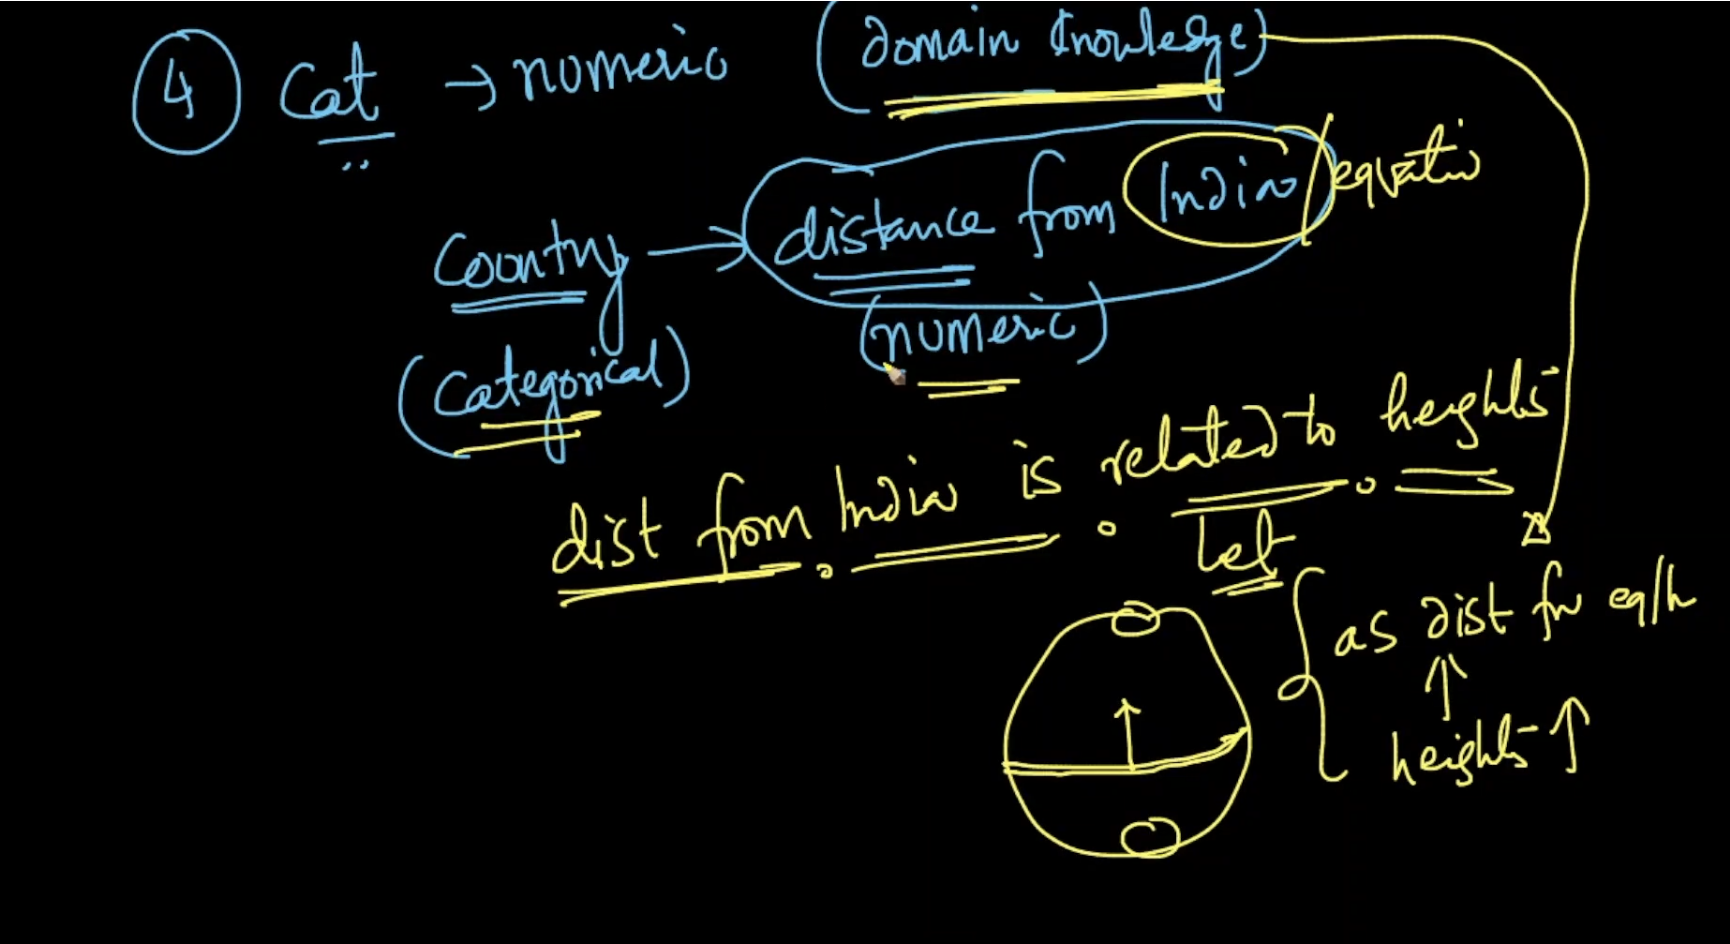 4 Cat → numeric (domain knowledge)
Country → distance from India / equatio
(categorical) (numeric)
dist from India is related to heights
Let
as dist fr eq/h
↑
heights ↑